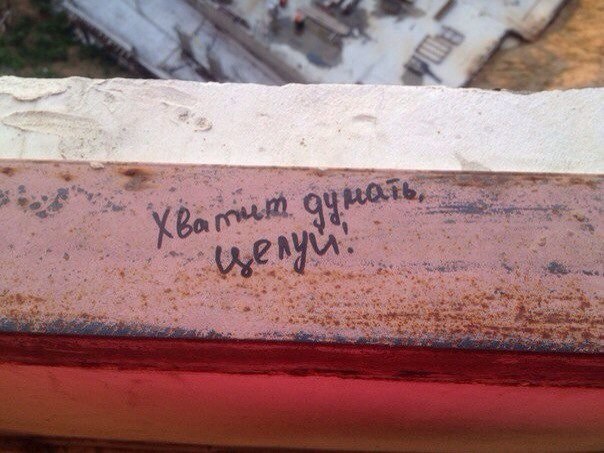 Хватит думать,
целуй!